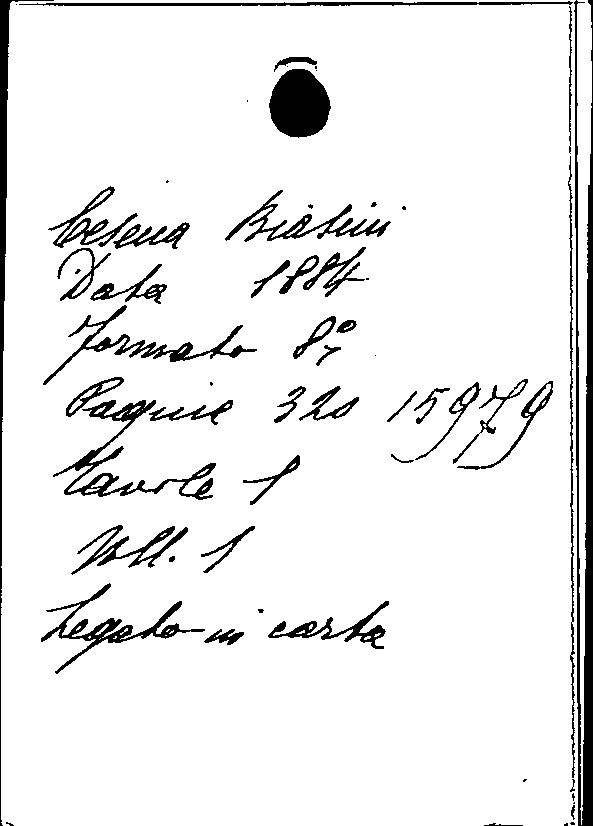 Cesena Biasini
Data 1884
Formato 8º
Pagine 320 15979
Tavole 1
Voll. 1
Legato in carta